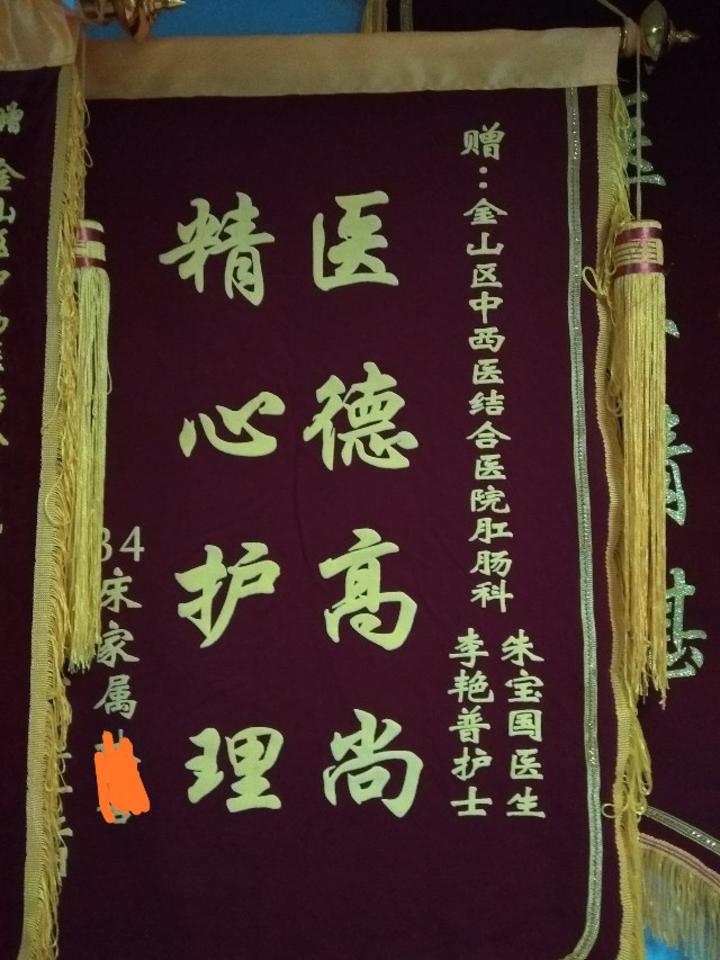 赠：金山区中西医结合医院肛肠科
朱宝国医生
李艳普护士
医德高尚
精心护理
34床家属
赠